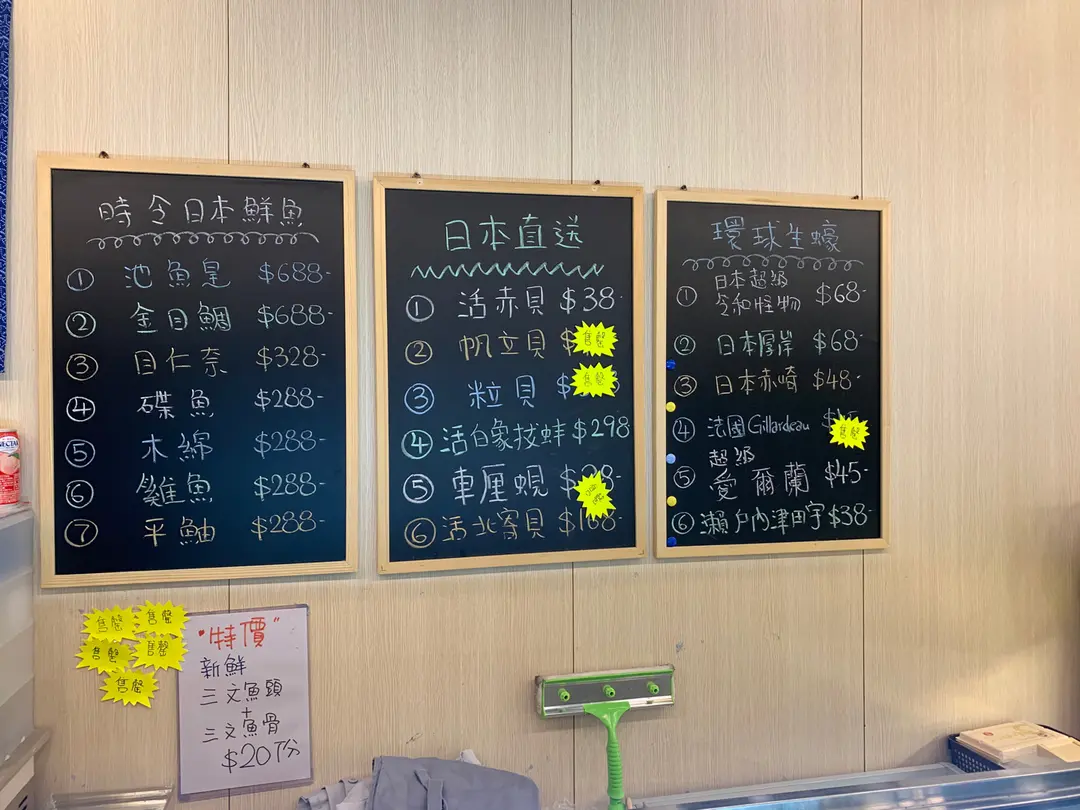 時令日本鮮魚
① 池魚皇 $688-
② 金目鯛 $688-
③ 目仁奈 $328-
④ 碟魚 $288-
⑤ 木綿 $288-
⑥ 雞魚 $288-
⑦ 平鮋 $288-
日本直送
① 活赤貝 $38-
② 帆立貝 $
售罄
③ 粒貝 $
售罄
④ 活白象拔蚌 $298
⑤ 車厘蜆 $28-
⑥ 活北寄貝 $168-
環球生蠔
① 日本超級
令和怪物 $68-
② 日本厚岸 $68-
③ 日本赤崎 $48-
④ 法國Gillardeau $
售罄
超級
⑤ 愛爾蘭 $45-
⑥ 瀨戶內津田宇 $38-
售罄
售罄
售罄
售罄
售罄
"特價"
新鮮
三文魚頭
+
三文魚骨
$20/份